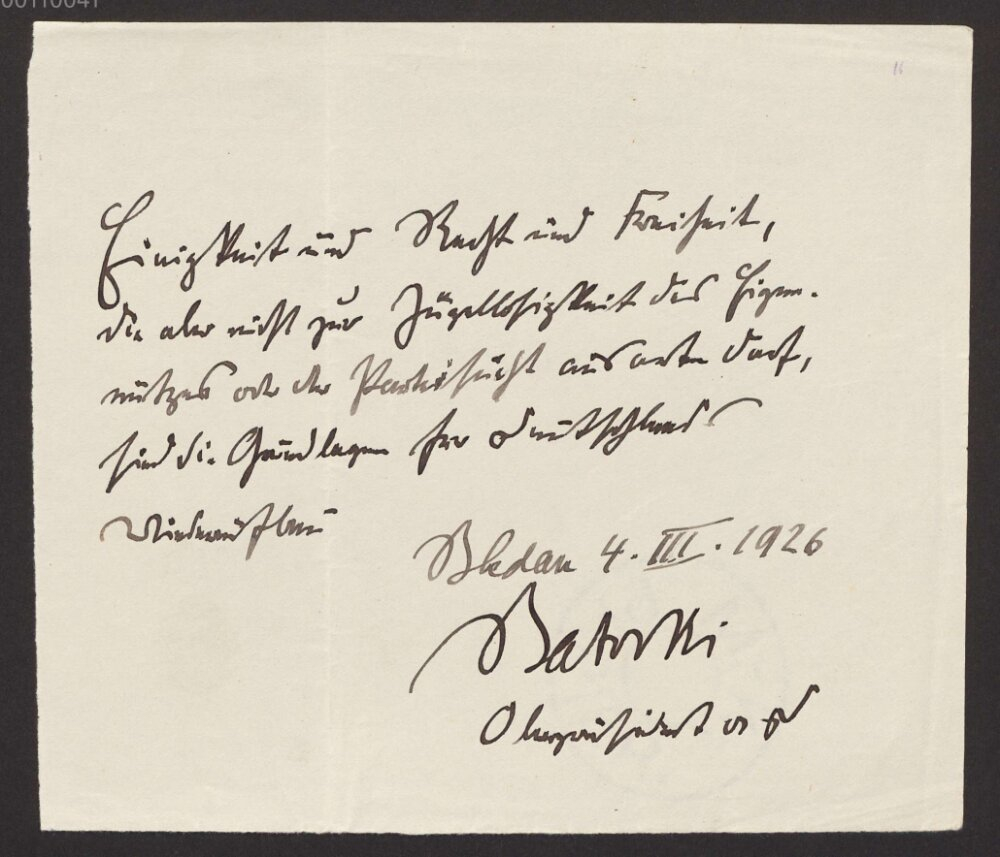 00110041
16
Einigkeit und Recht und Freiheit,
die aber nicht zur Zügellosigkeit des Eigen-
nutzes oder der Parteisucht ausarten darf,
sind die Grundlagen für Deutschlands
Wiederaufbau
Bledau 4. III. 1926
Batocki
Oberpräsident a D